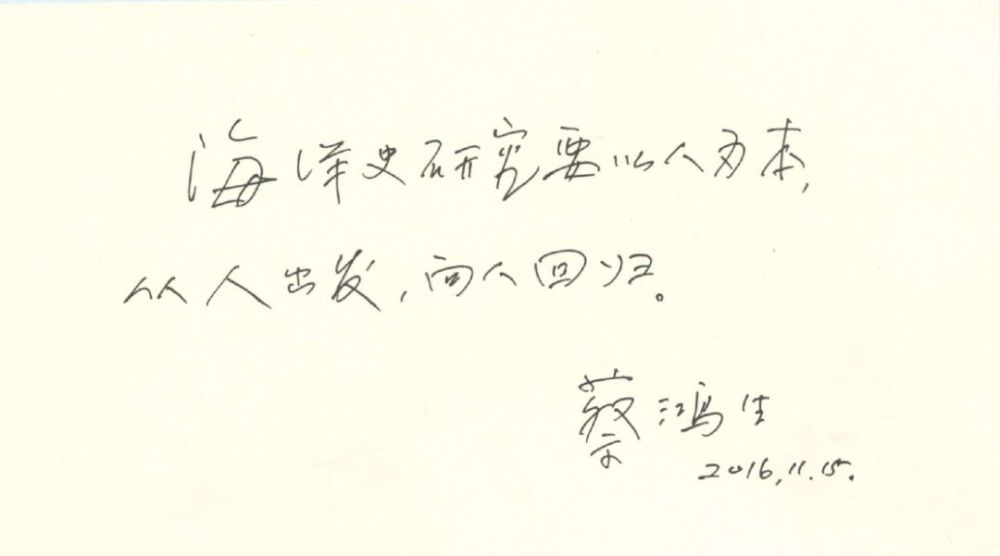 海洋史研究要以人为本,
从人出发,向人回归。
蔡鸿生
2016.11.15.